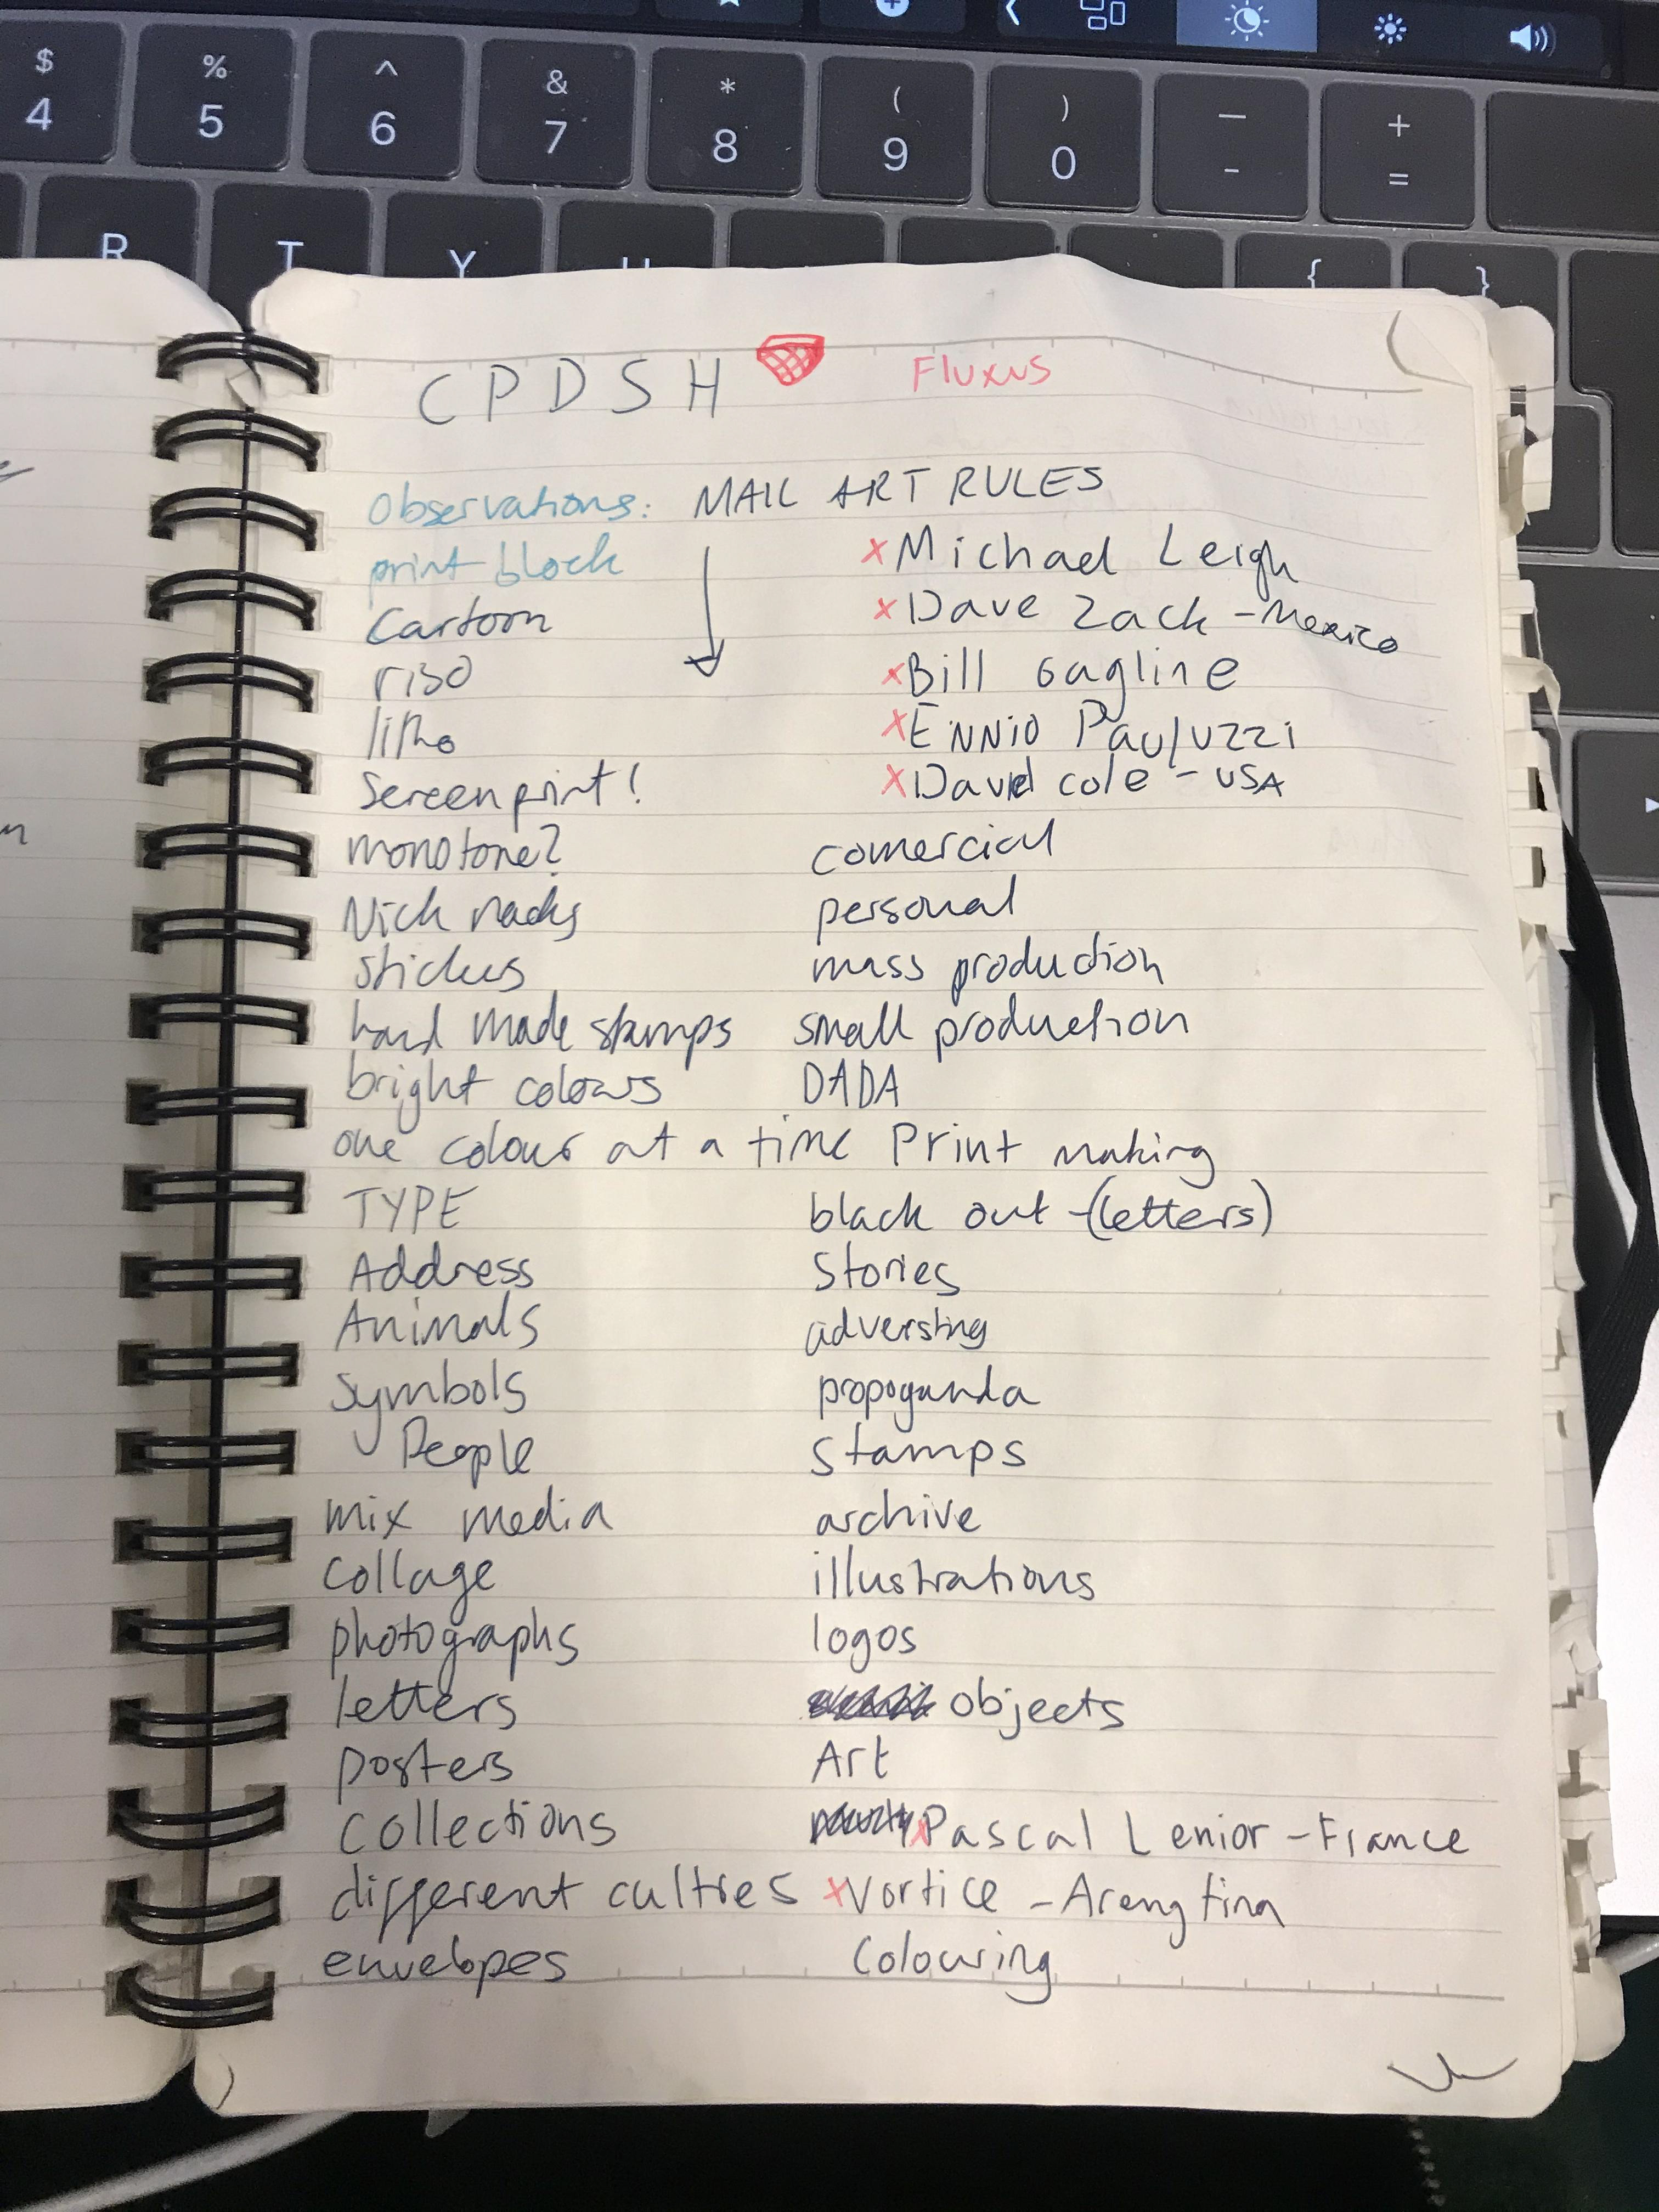 $ % ^ & * ( ) — +
4 5 6 7 8 9 0 - =
R T Y U { }
C P D S H Fluxus
Observations: MAIL ART RULES
print block
Cartoon
riso
litho
Screenprint!
monotone?
Nick nacks
stickers
hand made stamps
bright colours
one colour at a time
TYPE
Address
Animals
symbols
People
mix media
collage
photographs
letters
posters
collections
different cultres
envelopes
x Michael Leigh
x Dave Zack - Mexico
x Bill Gagline
x ENNiO Pauluzzi
x David cole - USA
comercial
personal
mass production
small production
DADA
Print making
black out - (letters)
Stories
adversting
propoganda
Stamps
archive
illustrations
logos
objects
Art
x Pascal Lenior - France
x Vortice - Arengtina
Colouring